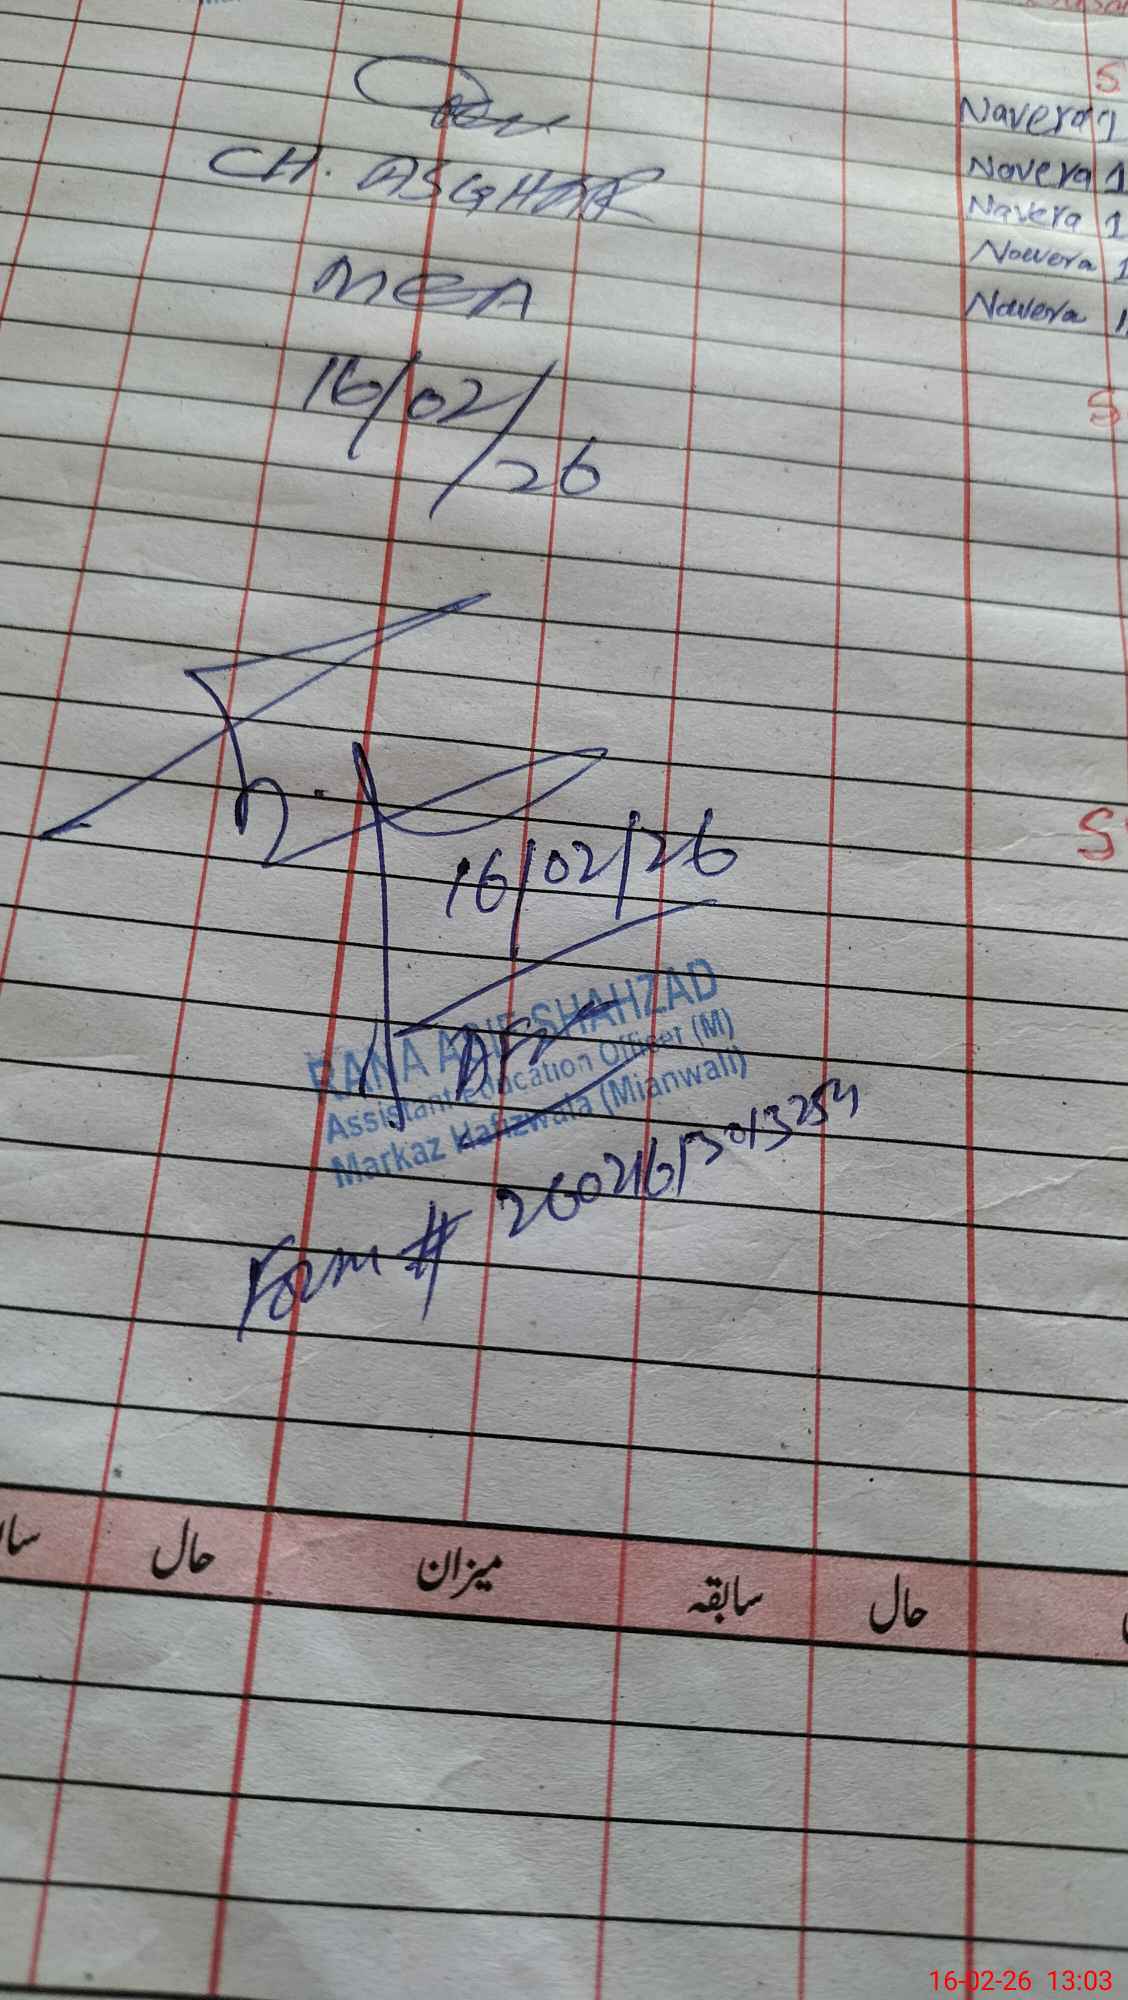 CH. ASGHAR
MEA
16/02/26
Navera 1
Navera 1
Navera 1
Navera 1
Navera 1
S
S
S
16/02/26
RANA ARIF SHAHZAD
Assistant Education Officer (M)
Markaz Hafizwala (Mianwali)
Form #
حال
میزان
سابقہ
حال
16-02-26 13:03